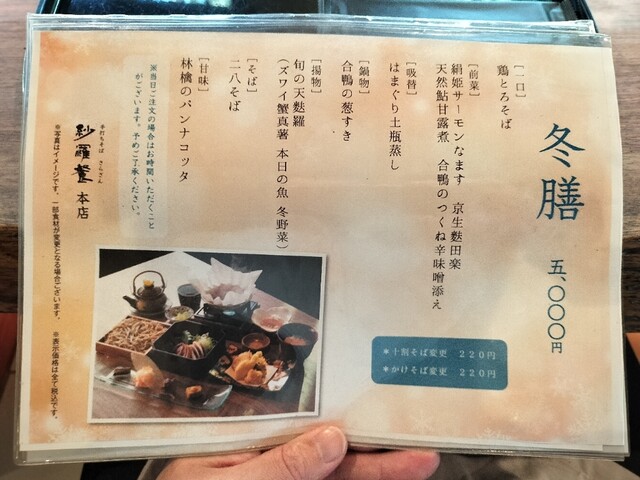 冬膳
五、〇〇〇円
[一口]
鶏とろそば
[前菜]
絹姫サーモンなます 京生麩田楽
天然鮎甘露煮 合鴨のつくね辛味噌添え
[吸替]
はまぐり土瓶蒸し
[鍋物]
合鴨の葱すき
[揚物]
旬の天麩羅
(ズワイ蟹真薯 本日の魚 冬野菜)
[そば]
二八そば
[甘味]
林檎のパンナコッタ
＊十割そば変更 220円
＊かけそば変更 220円
※当日ご注文の場合はお時間いただくこと
がございます。予めご了承ください。
手打ちそば さらざん
紗羅餐 本店
※写真はイメージです。一部食材が変更となる場合ございます。 ※表示価格は全て税込です。